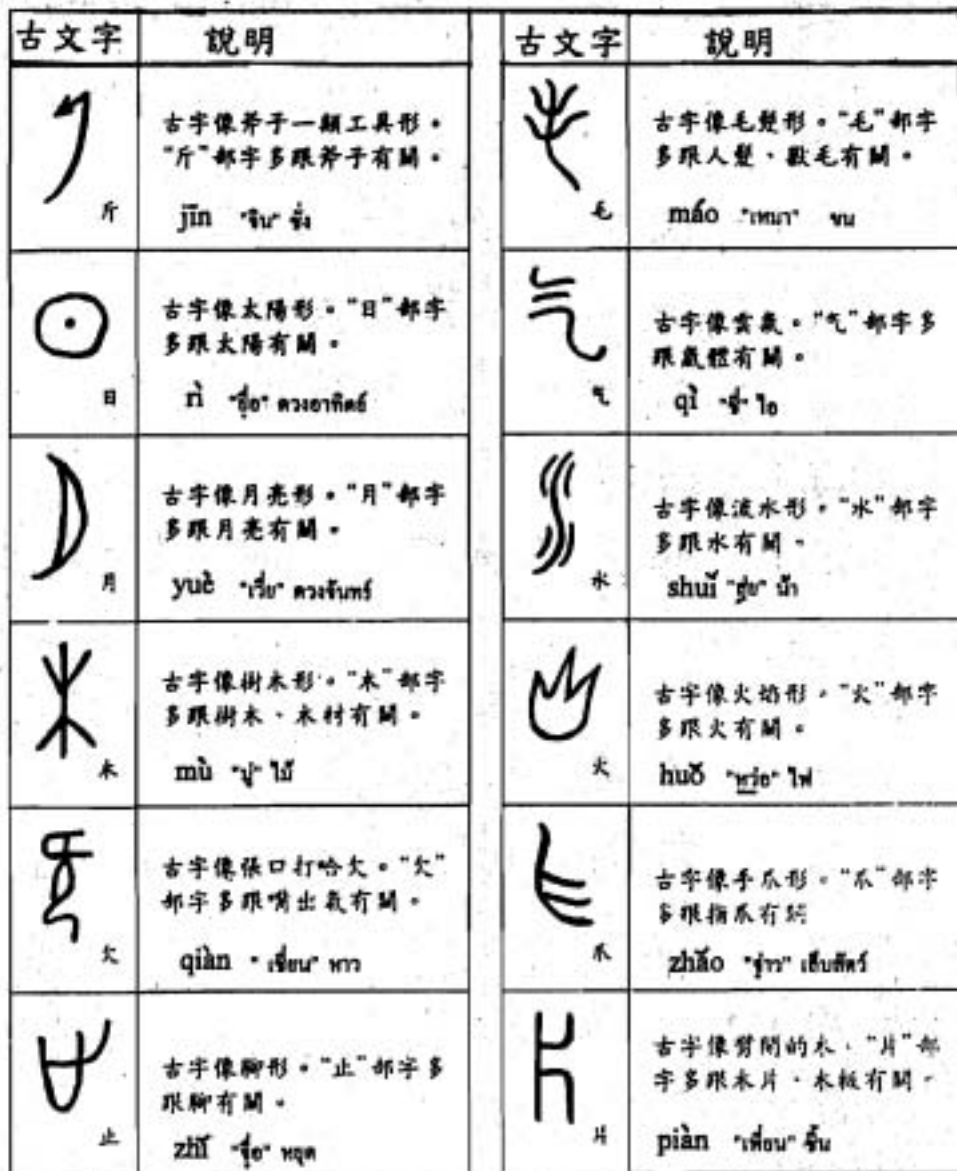 古文字 說明
斤
古字像斧子一類工具形。
"斤"部字多跟斧子有關。
jīn "จิน" ชั่ง
日
古字像太陽形。"日"部字
多跟太陽有關。
rì ดวงอาทิตย์
月
古字像月亮形。"月"部字
多跟月亮有關。
yuè "เวี่ย" ดวงจันทร์
木
古字像樹木形。"木"部字
多跟樹木、木材有關。
mù "มู่" ไม้
欠
古字像張口打哈欠。"欠"
部字多跟嘴出氣有關。
qiàn "เชี่ยน" หาว
止
古字像腳形。"止"部字多
跟腳有關。
zhǐ "จื่อ" หยุด
古文字 說明
毛
古字像毛髮形。"毛"部字
多跟人髮、獸毛有關。
máo "เหมา" ขน
气
古字像雲氣。"气"部字多
跟氣體有關。
qì "ชี่" ไอ
水
古字像流水形。"水"部字
多跟水有關。
shuǐ น้ำ
火
古字像火焰形。"火"部字
多跟火有關。
huǒ "หว่อ" ไฟ
爪
古字像手爪形。"爪"部字
多跟指爪有關
zhǎo เล็บสัตว์
片
古字像劈開的木。"片"部
字多跟木片、木板有關。
piàn "เพี่ยน" ชิ้น